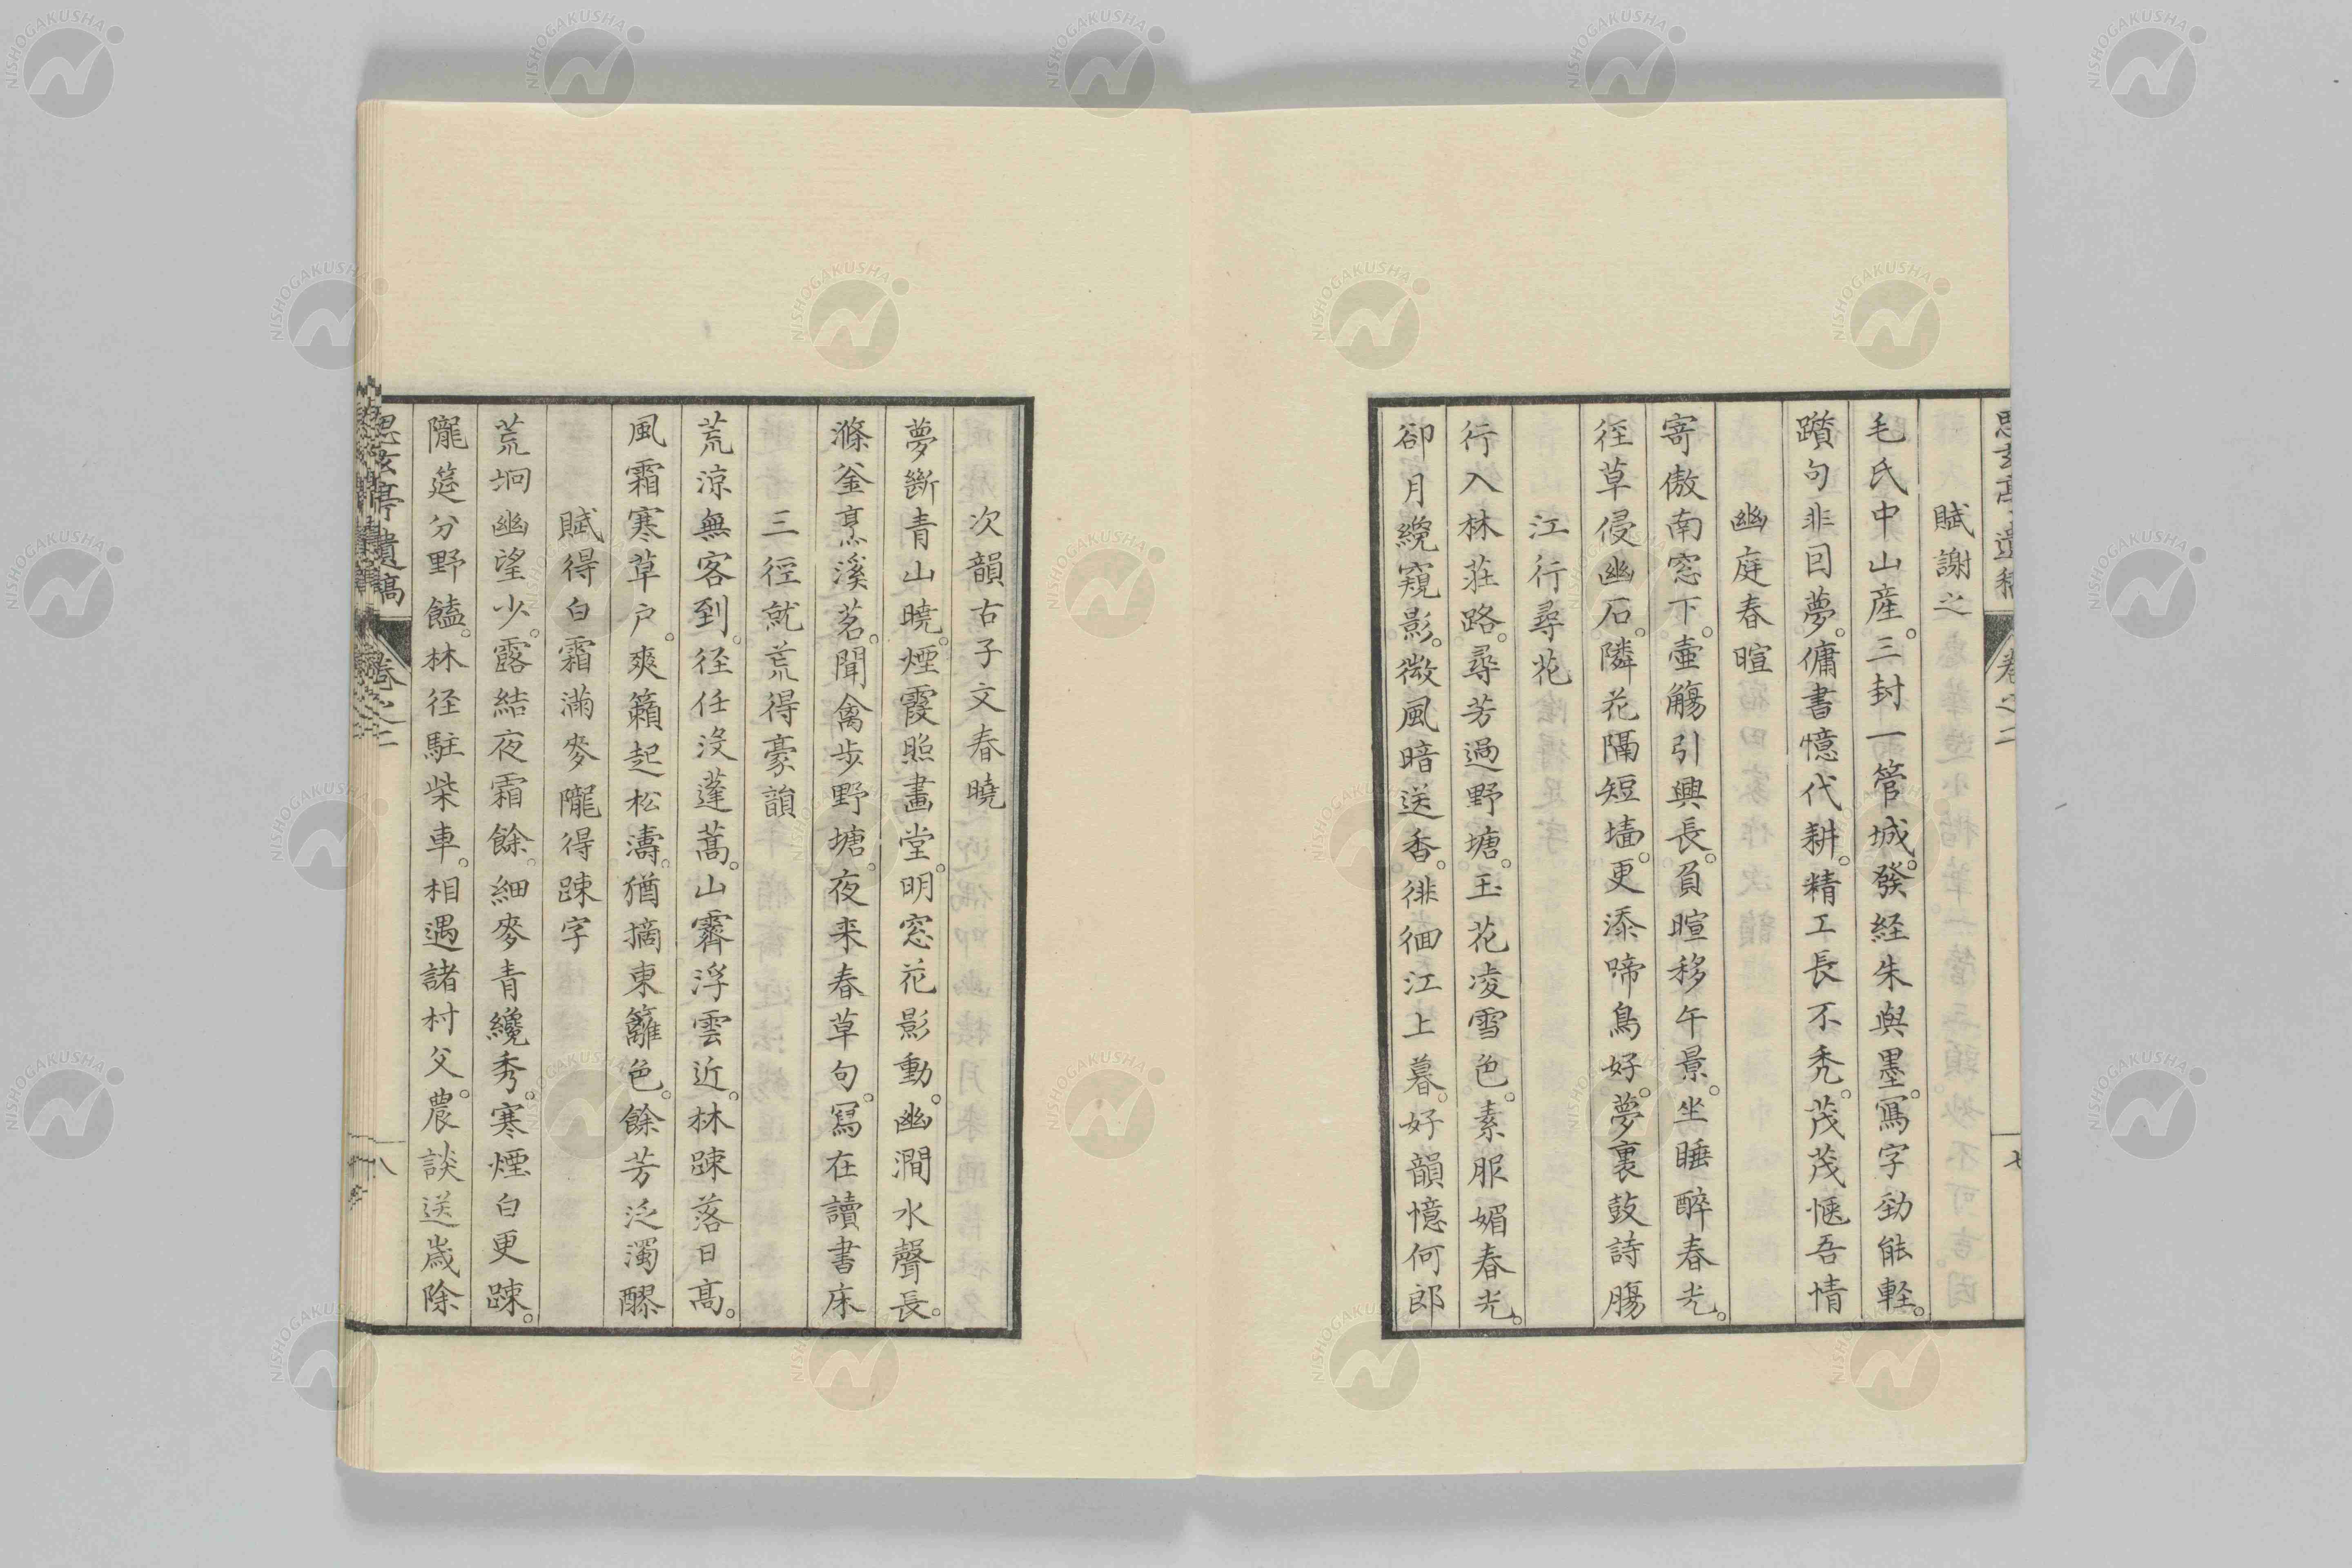 賦謝之
毛氏中山産。三封一管城。發経朱與墨。寫字劲能軽。
躓句非回夢。傭書憶代耕。精工長不禿。茂茂愜吾情
幽庭春暄
寄傲南窓下。壷觴引興長。負暄移午景。坐睡醉春光。
径草侵幽石。隣花隔短墻。更添啼鳥好。夢裏鼓詩腸
江行尋花
行入林莊路。尋芳過野塘。玉花凌雪色。素服媚春光。
卻月纔窺影。微風暗送香。徘徊江上暮。好韻憶何郎
思玄亭遺稿 卷之二 七
次韻古子文春曉
夢斷青山曉。煙霞照畫堂。明窓花影動。幽澗水聲長。
滌釜烹溪茗。聞禽步野塘。夜来春草句。冩在讀書床
三徑就荒得豪韻
荒涼無客到。径任没蓬蒿。山霽浮雲近。林踈落日高。
風霜寒草户。爽籟起松濤。猶摘東籬色。餘芳泛濁醪
賦得白霜滿麥隴得踈字
荒坰幽望少。露結夜霜餘。細麥青纔秀。寒煙白更踈。
隴莚分野饁。林径駐柴車。相遇諸村父。農談送歲除
思玄亭遺稿 卷之二 八
NISHOGAKUSHA